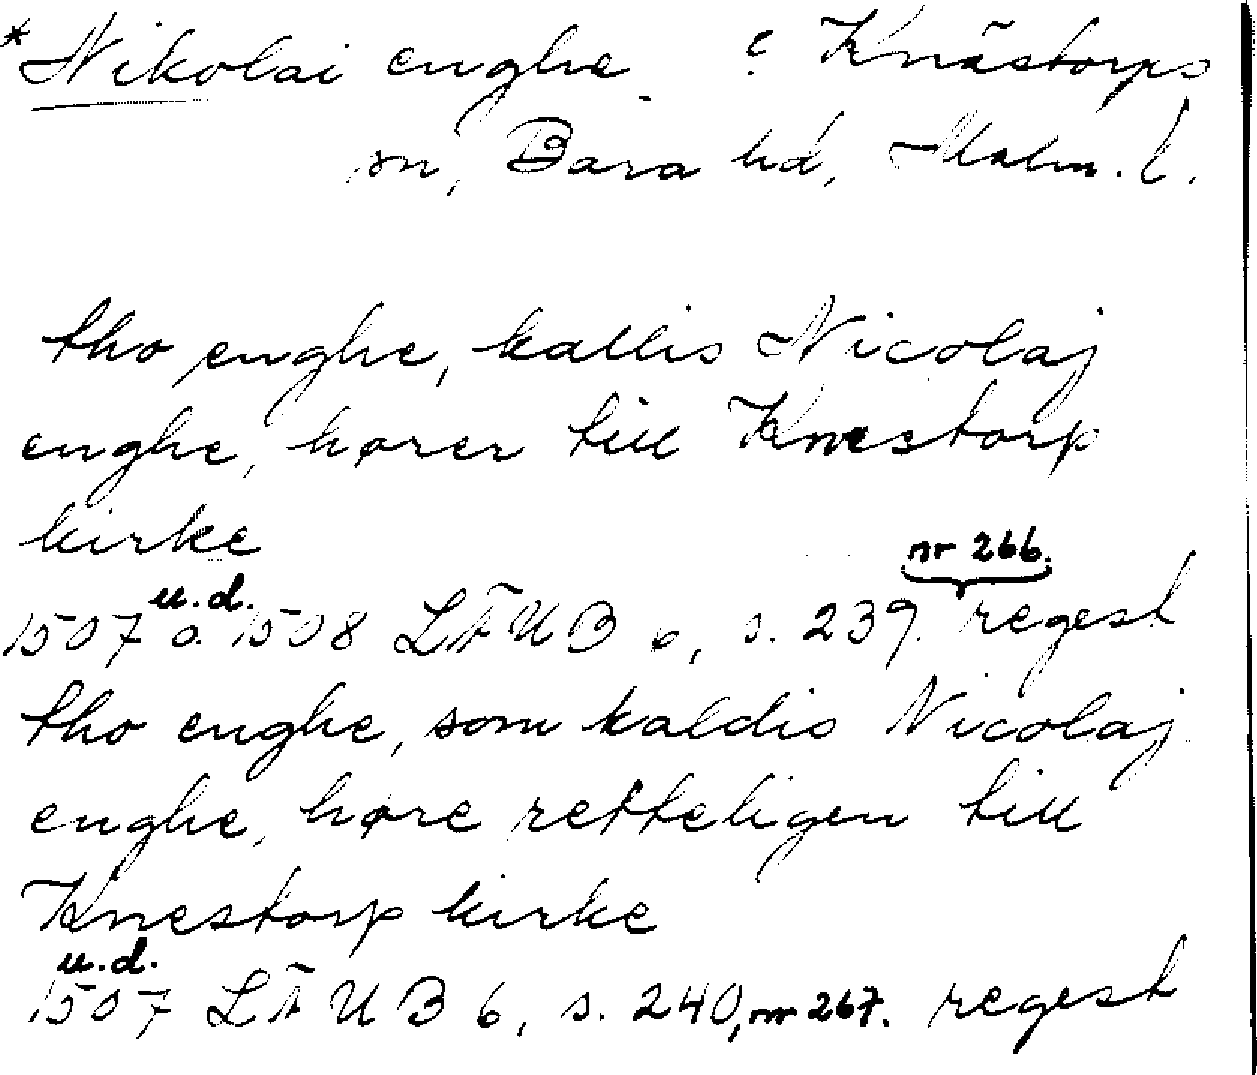 *Nikolai enghe ? Knästorps
sn, Bara hd, Malm. l.
tho enghe, kallis Nicolaj
enghe, hører till Knestorp
kirke
nr 266.
u.d.
1507 o. 1508 LÄUB 6, s. 239. regest
tho enghe, som kaldis Nicolaj
enghe, høre retteligen till
Knestorp kirke
u.d.
1507 LÄUB 6, s. 240, nr 267. regest